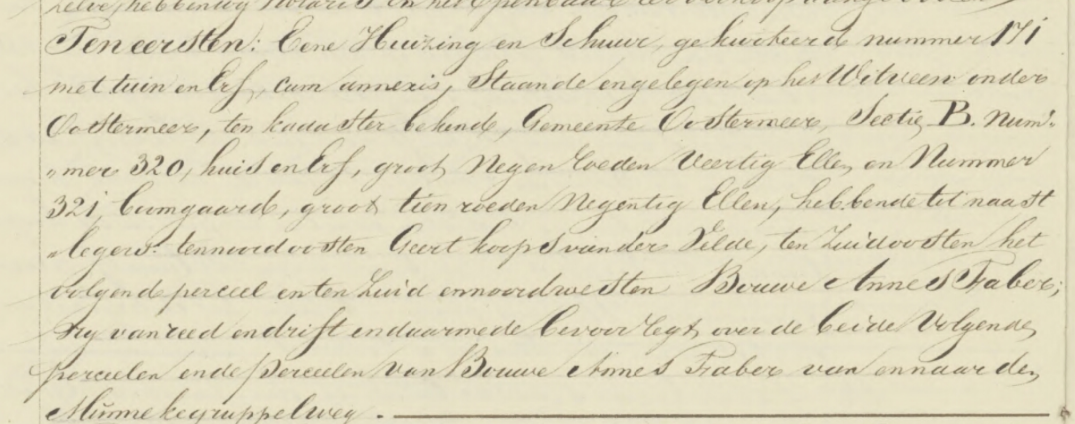 zelve, hebbening Notaris en het Openbaar
Ten eersten: Eene Huizing en Schuur, gekwoteerd nummer 171
met tuin en Erf, cum annexis, Staande en gelegen op het Witveen onder
Oostermeer, ten kadaster bekend, Gemeente Oostermeer, Sectie B. Num„
„mer 320, huis en Erf, groot Negen roeden Veertig Ellen, en Nummer
321, boomgaard, groot tien roeden Negentig Ellen, hebbende tot naast
„legers: ten noordoosten Geert Koops van der Velde, ten Zuidoosten het
volgende perceel en ten Zuid en noordwesten Bouwe Annes Faber;
Vry van reed en drift en daarmede bevoorregt, over de beide Volgende
perceelen en de perceelen van Bouwe Annes Faber van en naar de
Minnekegruppelweg.